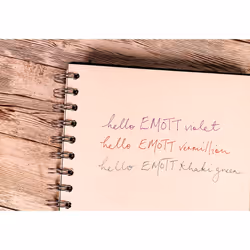 hello EMOTT violet
hello EMOTT vermillion
hello EMOTT khaki green